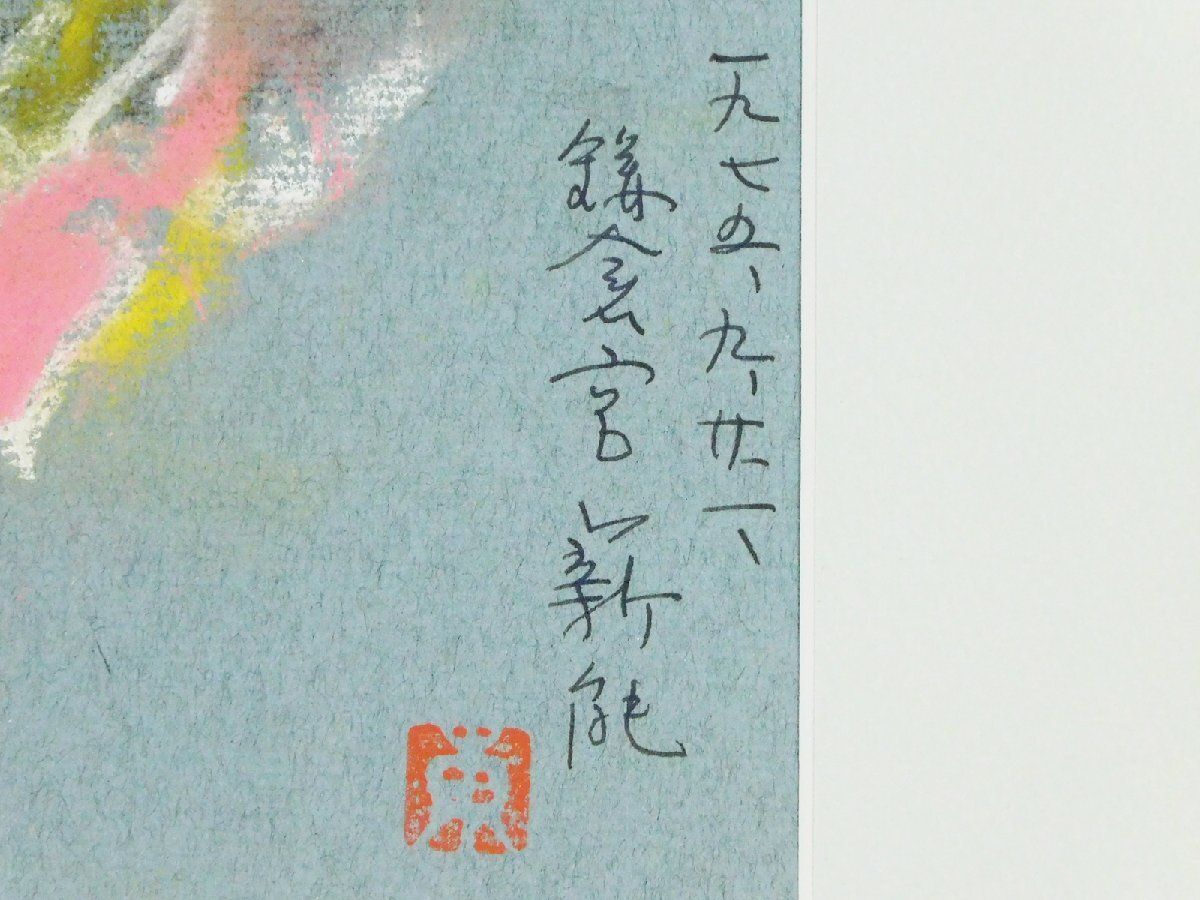 一九七五、九、廿一、
鎌倉宮薪能